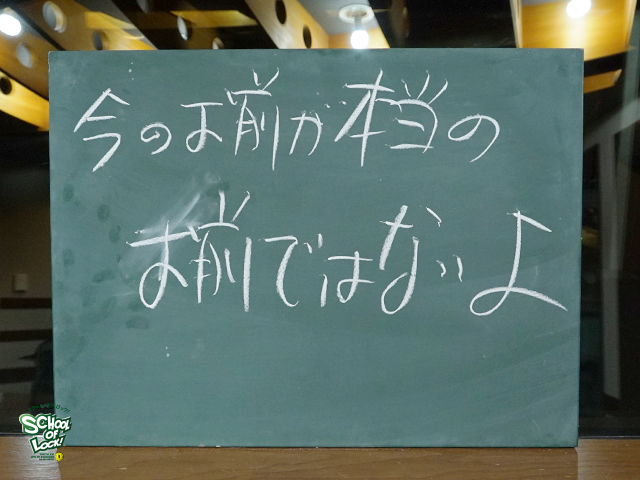 今のお前が本当の
お前ではないよ
SCHOOL
OF
LOCK!